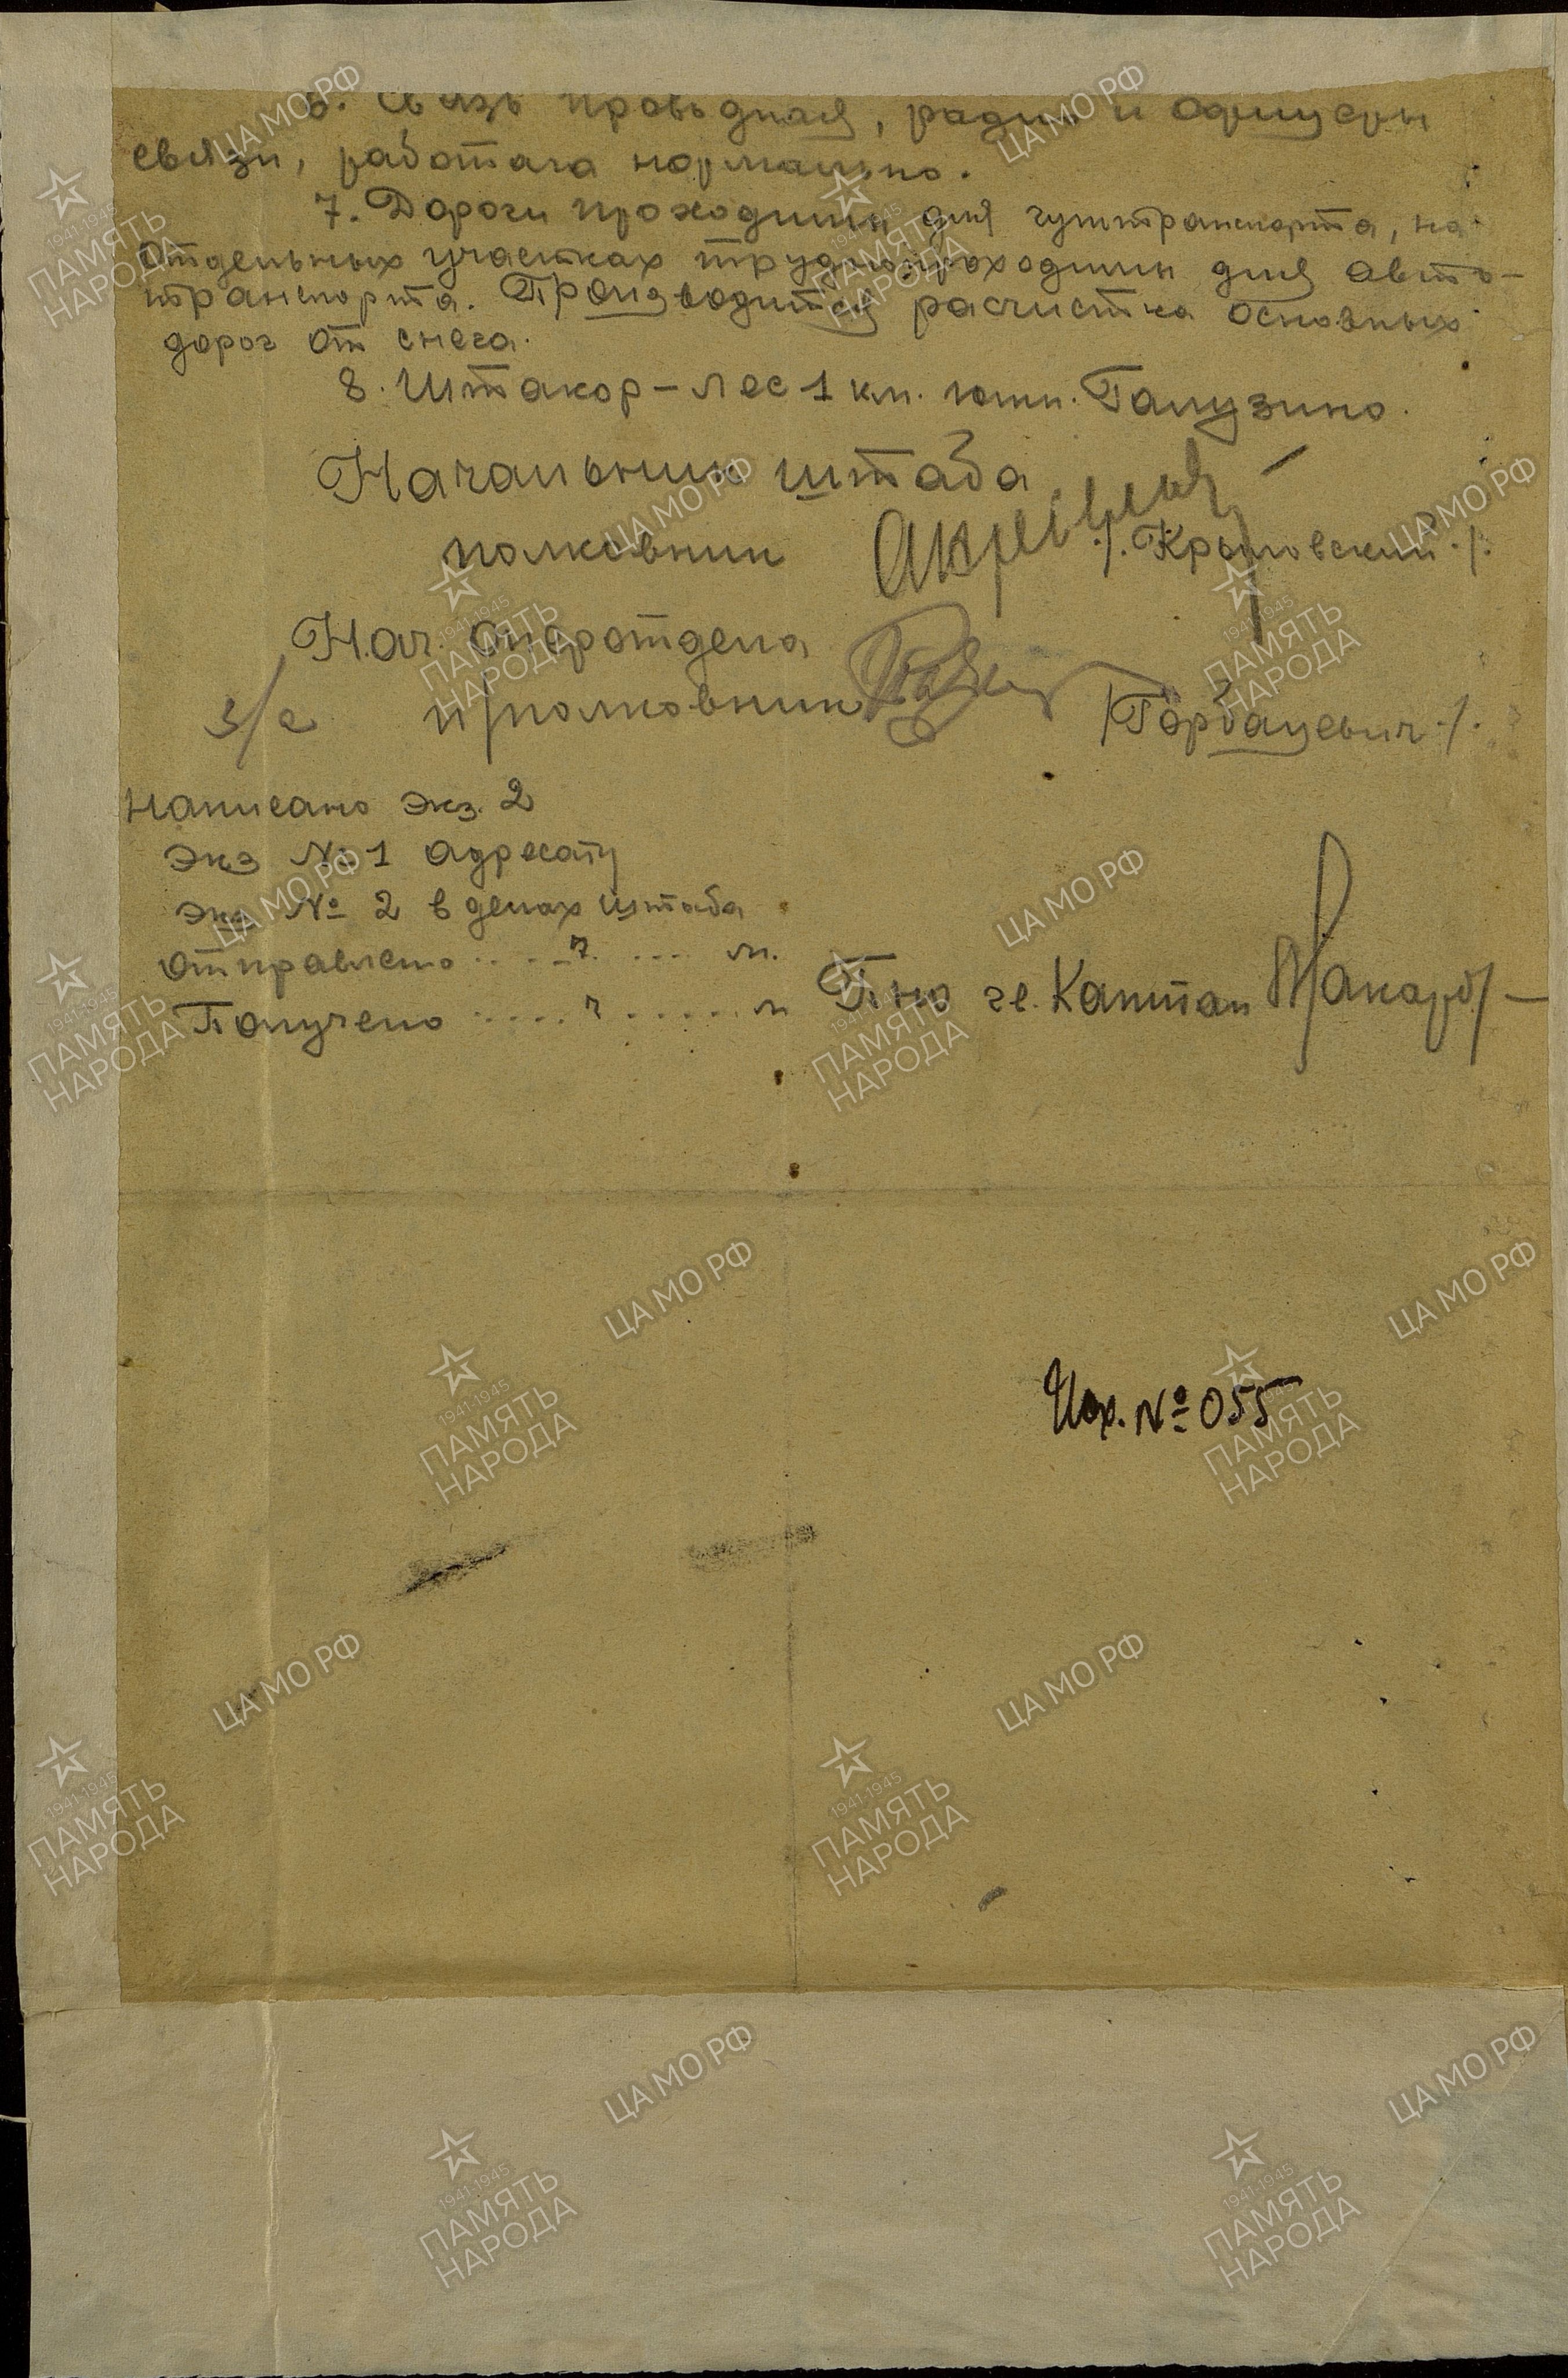 6. Связь проводная, радио и офицеры
связи, работала нормально.
7. Дороги проходимы для гужтранспорта, на
отдельных участках труднопроходимы для авто-
транспорта. Производится расчистка основных
дорог от снега.
8. Штакор – лес 1 км. южн. Галузино.
Начальник штаба
полковник /.Крыловский./.
Нач. оперотдела
п/полковник /Горбацевич./.
з/с
Написано экз. 2
Экз № 1 адресату
Экз № 2 в делах штаба
Отправлено ..... ч. .... м.
Получено ..... ч ...... м
Капитан
Исх. № 055
ЦАМО РФ
1941-1945
ПАМЯТЬ
НАРОДА